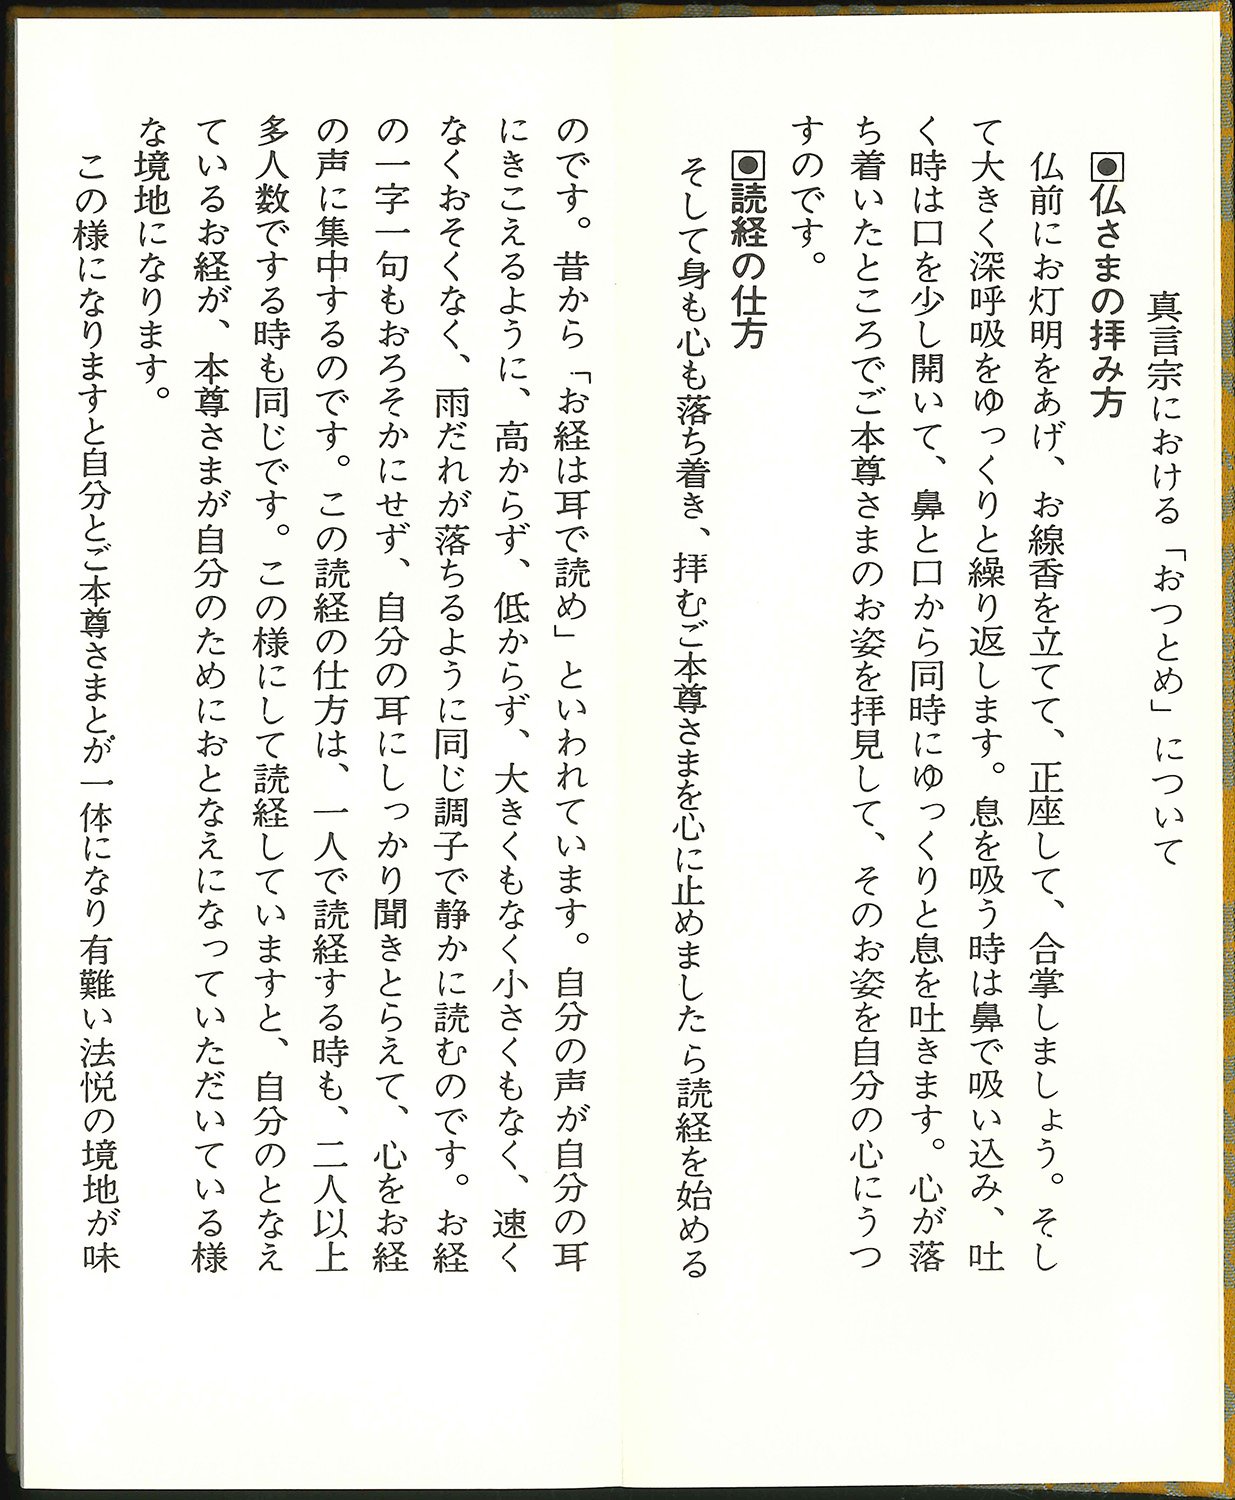 真言宗における「おつとめ」について
◉仏さまの拝み方
仏前にお灯明をあげ、お線香を立てて、正座して、合掌しましょう。そし
て大きく深呼吸をゆっくりと繰り返します。息を吸う時は鼻で吸い込み、吐
く時は口を少し開いて、鼻と口から同時にゆっくりと息を吐きます。心が落
ち着いたところでご本尊さまのお姿を拝見して、そのお姿を自分の心にうつ
すのです。
◉読経の仕方
そして身も心も落ち着き、拝むご本尊さまを心に止めましたら読経を始める
のです。昔から「お経は耳で読め」といわれています。自分の声が自分の耳
にきこえるように、高からず、低からず、大きくもなく小さくもなく、速く
なくおそくなく、雨だれが落ちるように同じ調子で静かに読むのです。お経
の一字一句もおろそかにせず、自分の耳にしっかり聞きとらえて、心をお経
の声に集中するのです。この読経の仕方は、一人で読経する時も、二人以上
多人数でする時も同じです。この様にして読経していますと、自分のとなえ
ているお経が、本尊さまが自分のためにおとなえになっていただいている様
な境地になります。
この様になりますと自分とご本尊さまとが一体になり有難い法悦の境地が味